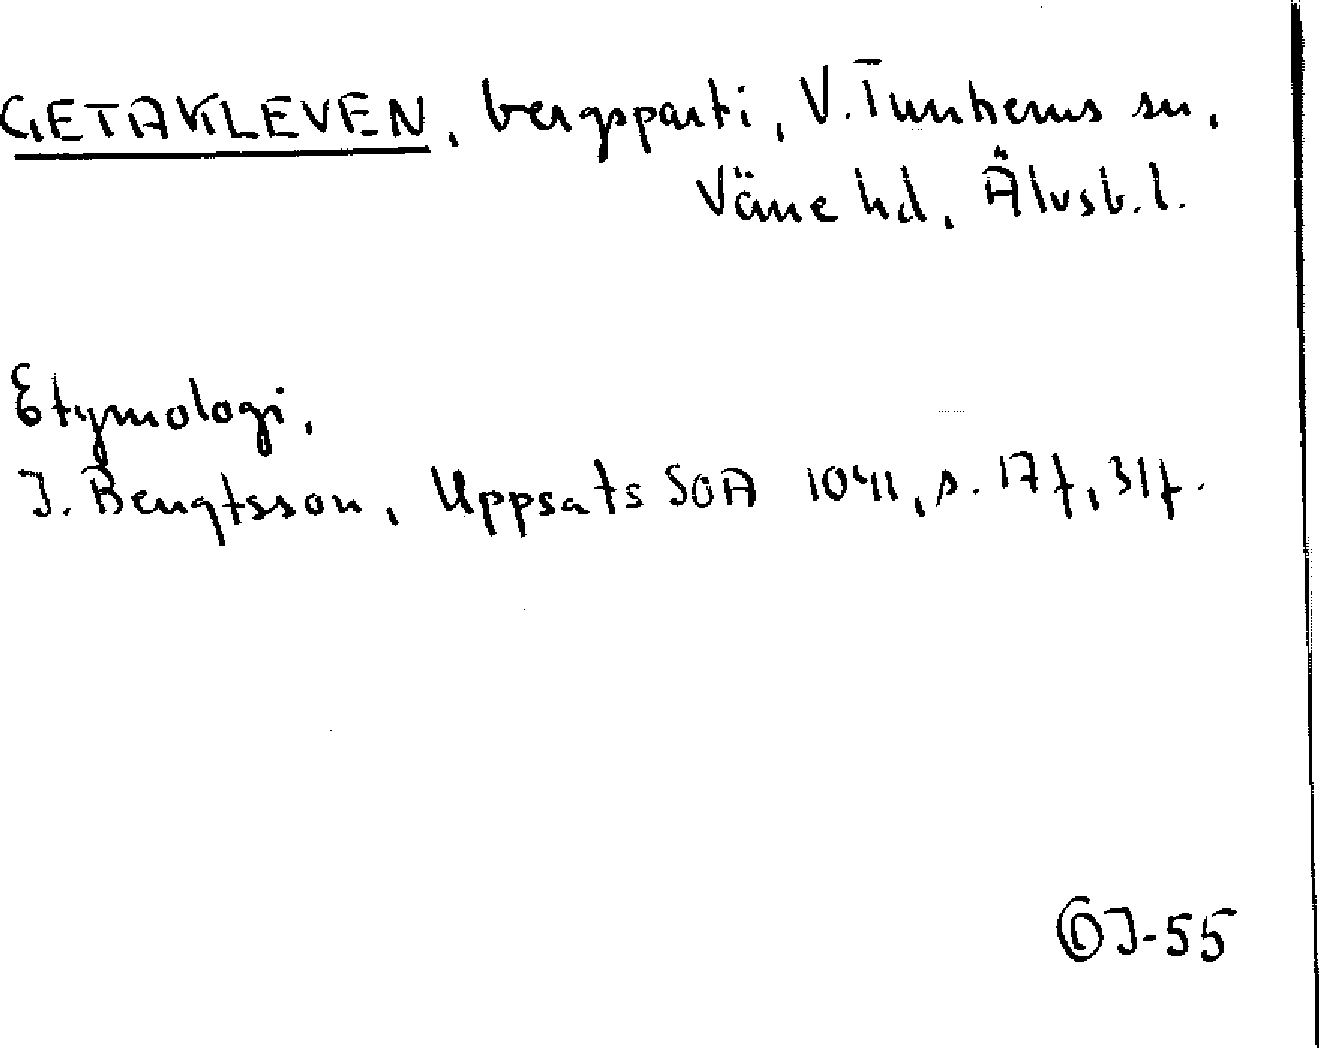 GETAKLEVEN, bergsparti, V. Tunhems sn,
Väne hd, Älvsb. l.
Etymologi.
J. Bengtsson, Uppsats SOA 1041, s. 17f, 31f.
J-55